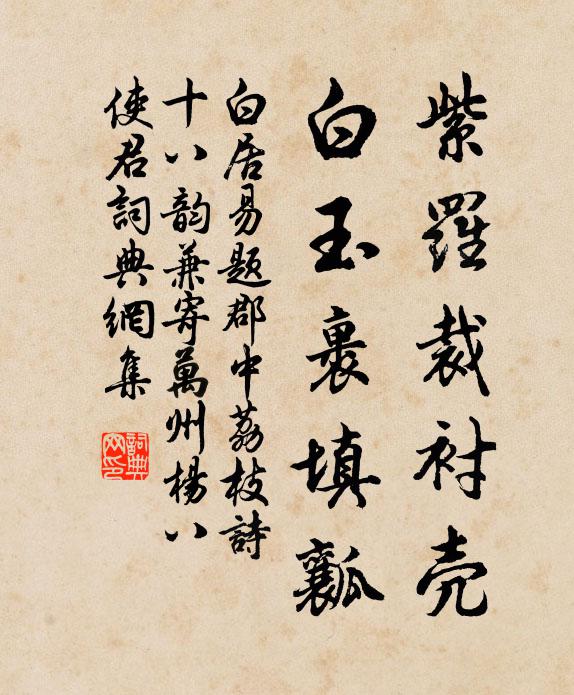 紫羅裁衬壳
白玉裹填瓤
白居易題郡中荔枝詩
十八韵兼寄萬州楊八
使君詞典網集
詞典网印